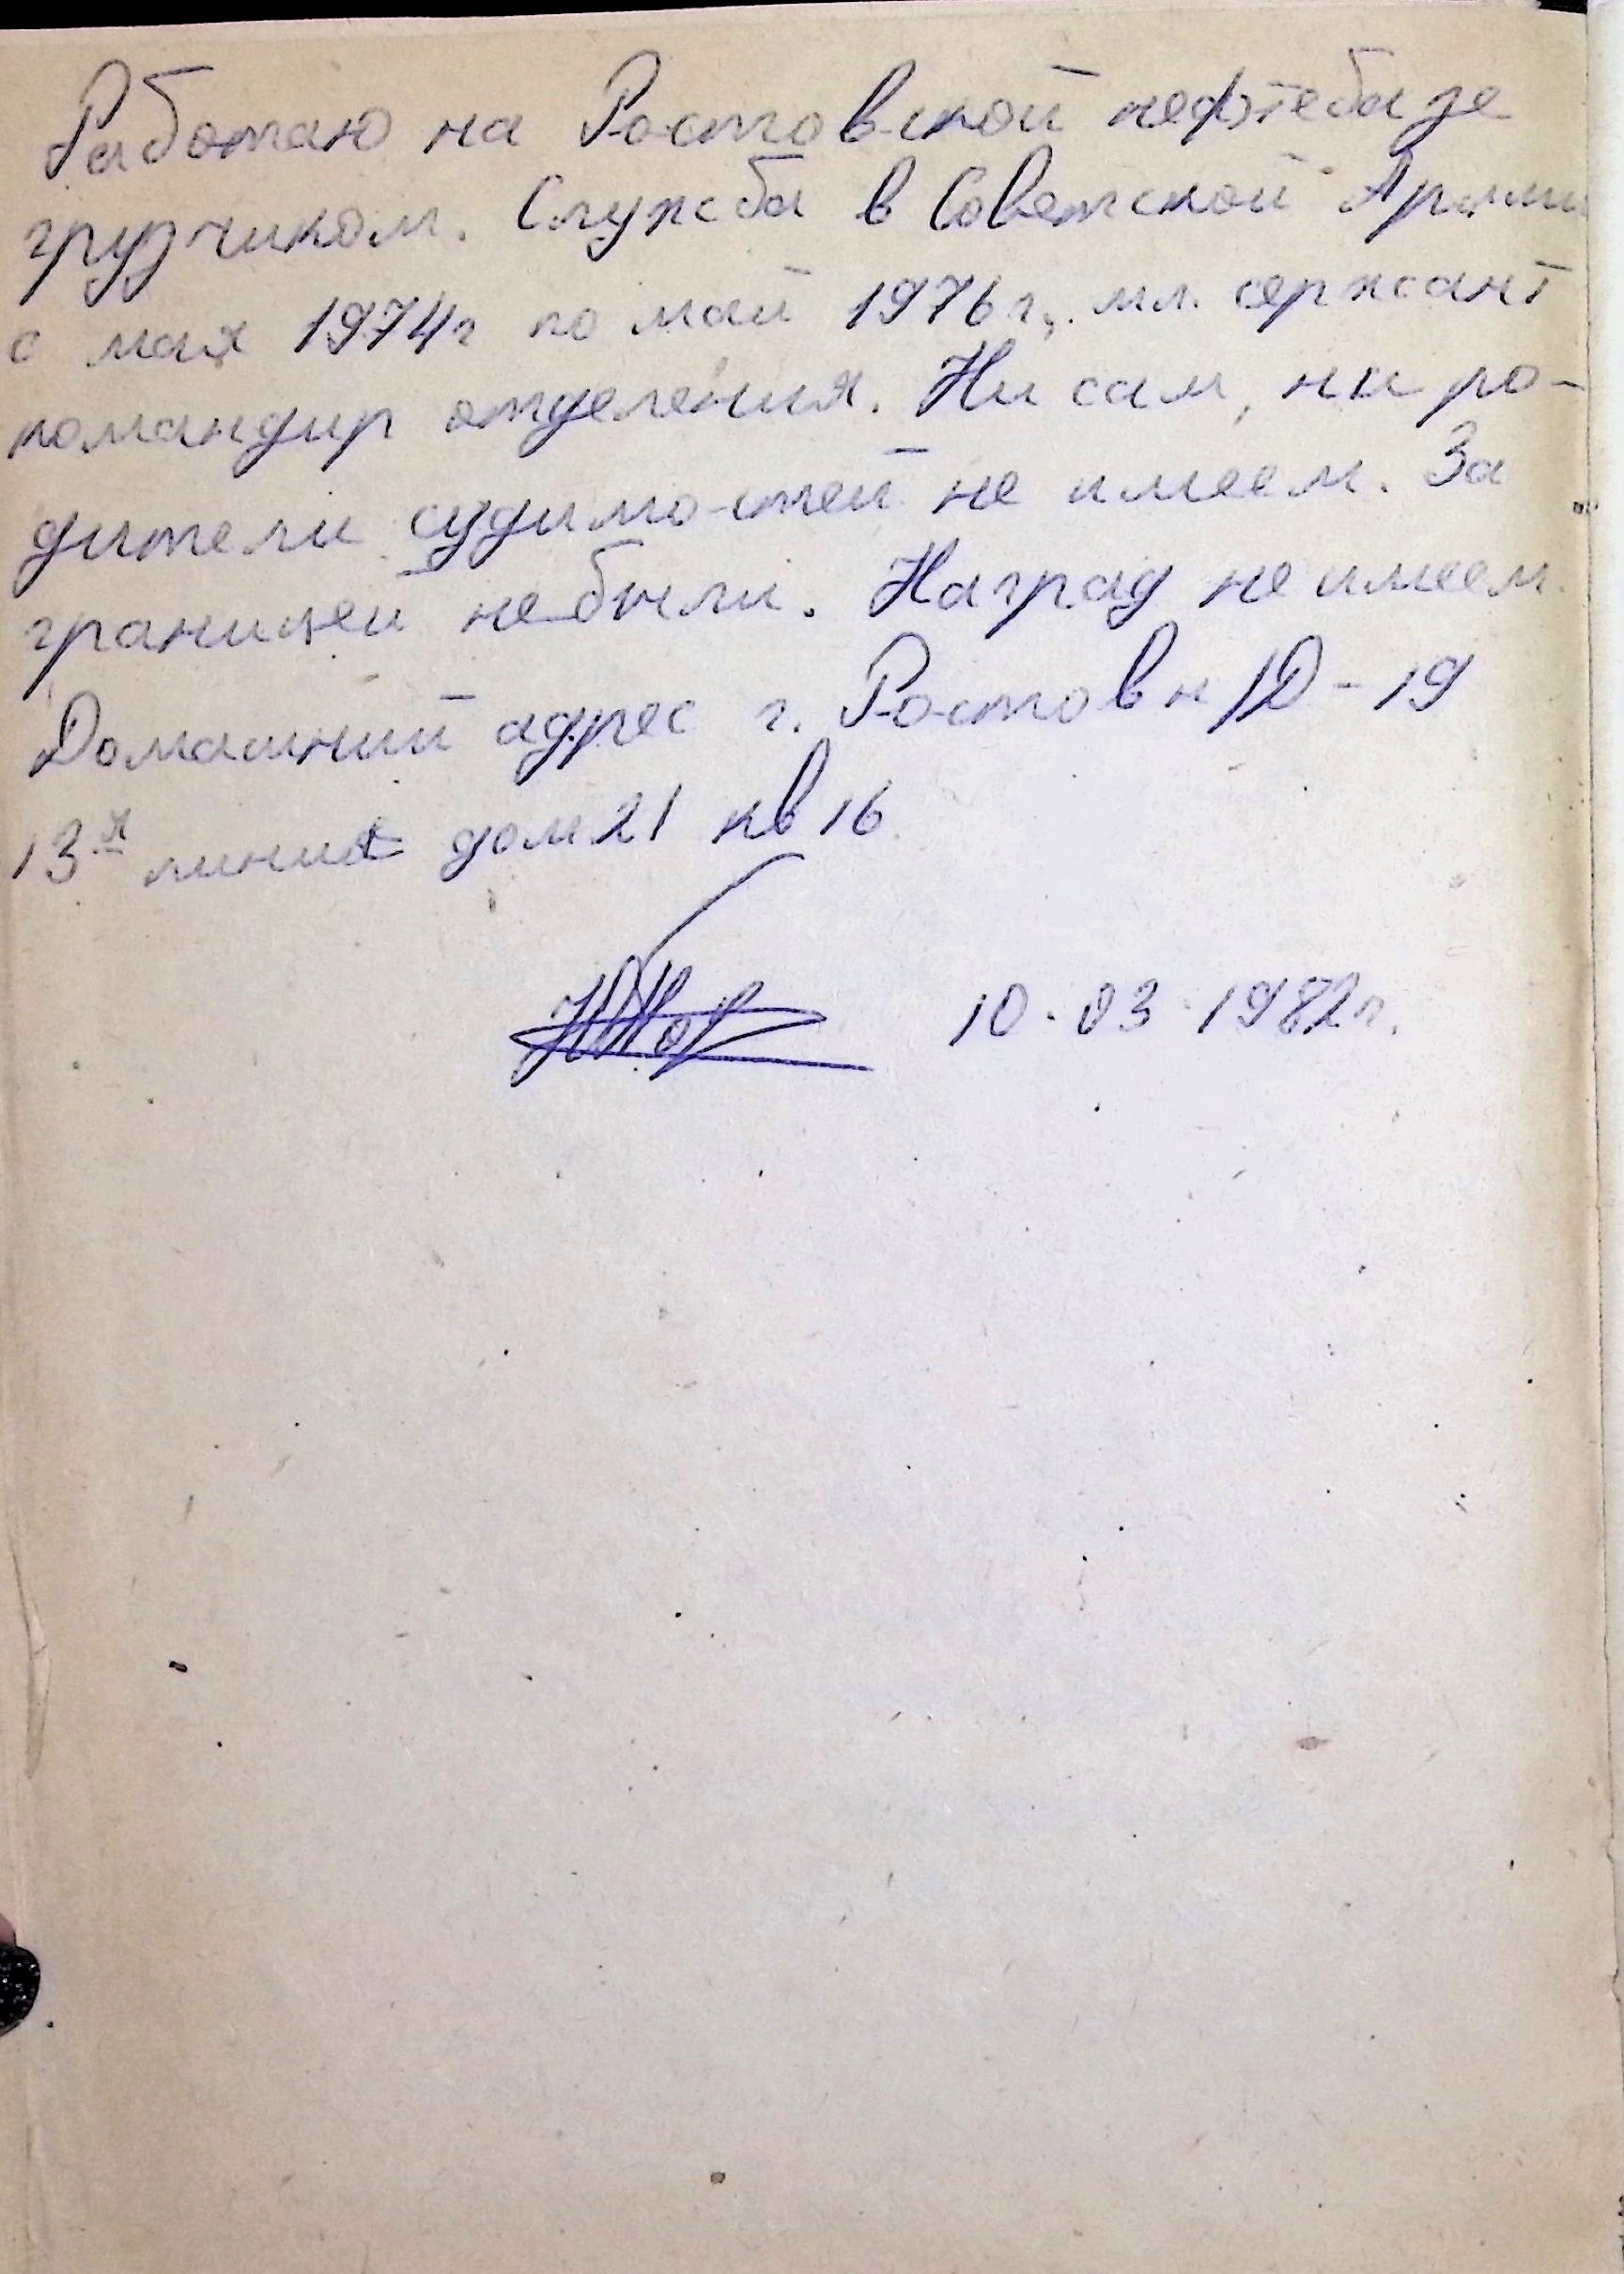 Работаю на Ростовской нефтебазе
грузчиком. Служба в Советской Армии
с мая 1974г по май 1976г, мл. сержант
командир отделения. Ни сам, ни ро-
дители судимостей не имеем. За
границей не были. Наград не имеем.
Домашний адрес г. Ростов н/Д-19
13я линия дом 21 кв 16
10.03.1982г.